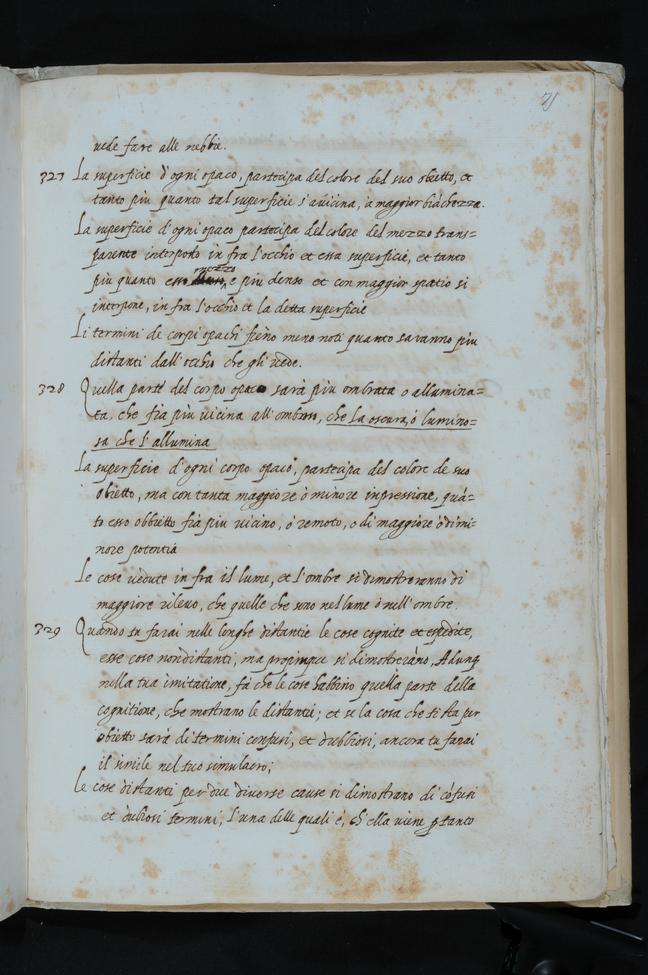 71
uede fare alle nebbie.
327 La superficie d'ogni opaco, partecipa del colore del suo obietto, et
tanto piu quanto tal superficie s'auicina, a maggior biāchezza.
La superficie d'ogni opaco partecipa del colore del mezzo trans-
parente interposto in fra l'occhio et essa superficie, et tanto
mezzo
piu quanto esso è piu denso et con maggior spatio si
interpone, in fra l'occhio et la detta superficie
Li termini de corpi opachi fieno meno noti quanto saranno piu
distanti dall'occhio che gli uede.
328 Quella parte del corpo opaco sarà piu ombrata o allumina=
ta, che fia piu uicina all'ombroso, che la oscura, ó lumino=
sa che l'allumina
La superficie d'ogni corpo opaco, partecipa del colore de suo
obietto, ma con tanta maggiore ò minore inpressione, quā=
to esso obbietto fia piu uicino, ó remoto, o di maggiore ò di mi=
nore potentia
Le cose uedute in fra il lume, et l'ombre si dimostreranno di
maggiore rileuo, che quelle che sono nel lume ò nell'ombre.
329 Quando tu farai nelle longhe distantie le cose cognite et espedite,
esse cose non distanti, ma propinque si dimostreràno. Adunq
nella tua imitatione, fà che le cose habbino quella parte della
cognitione, che mostrano le distantie; et se la cosa che ti sta per
obietto sarà di termini confusi, et dubbiosi, ancora tu farai
il simile nel tuo simulacro;
Le cose distanti per due diuerse cause si dimostrano di cōfusi
et dubiosi termini, l'una delle quali è, ch'ella uiene p tanto